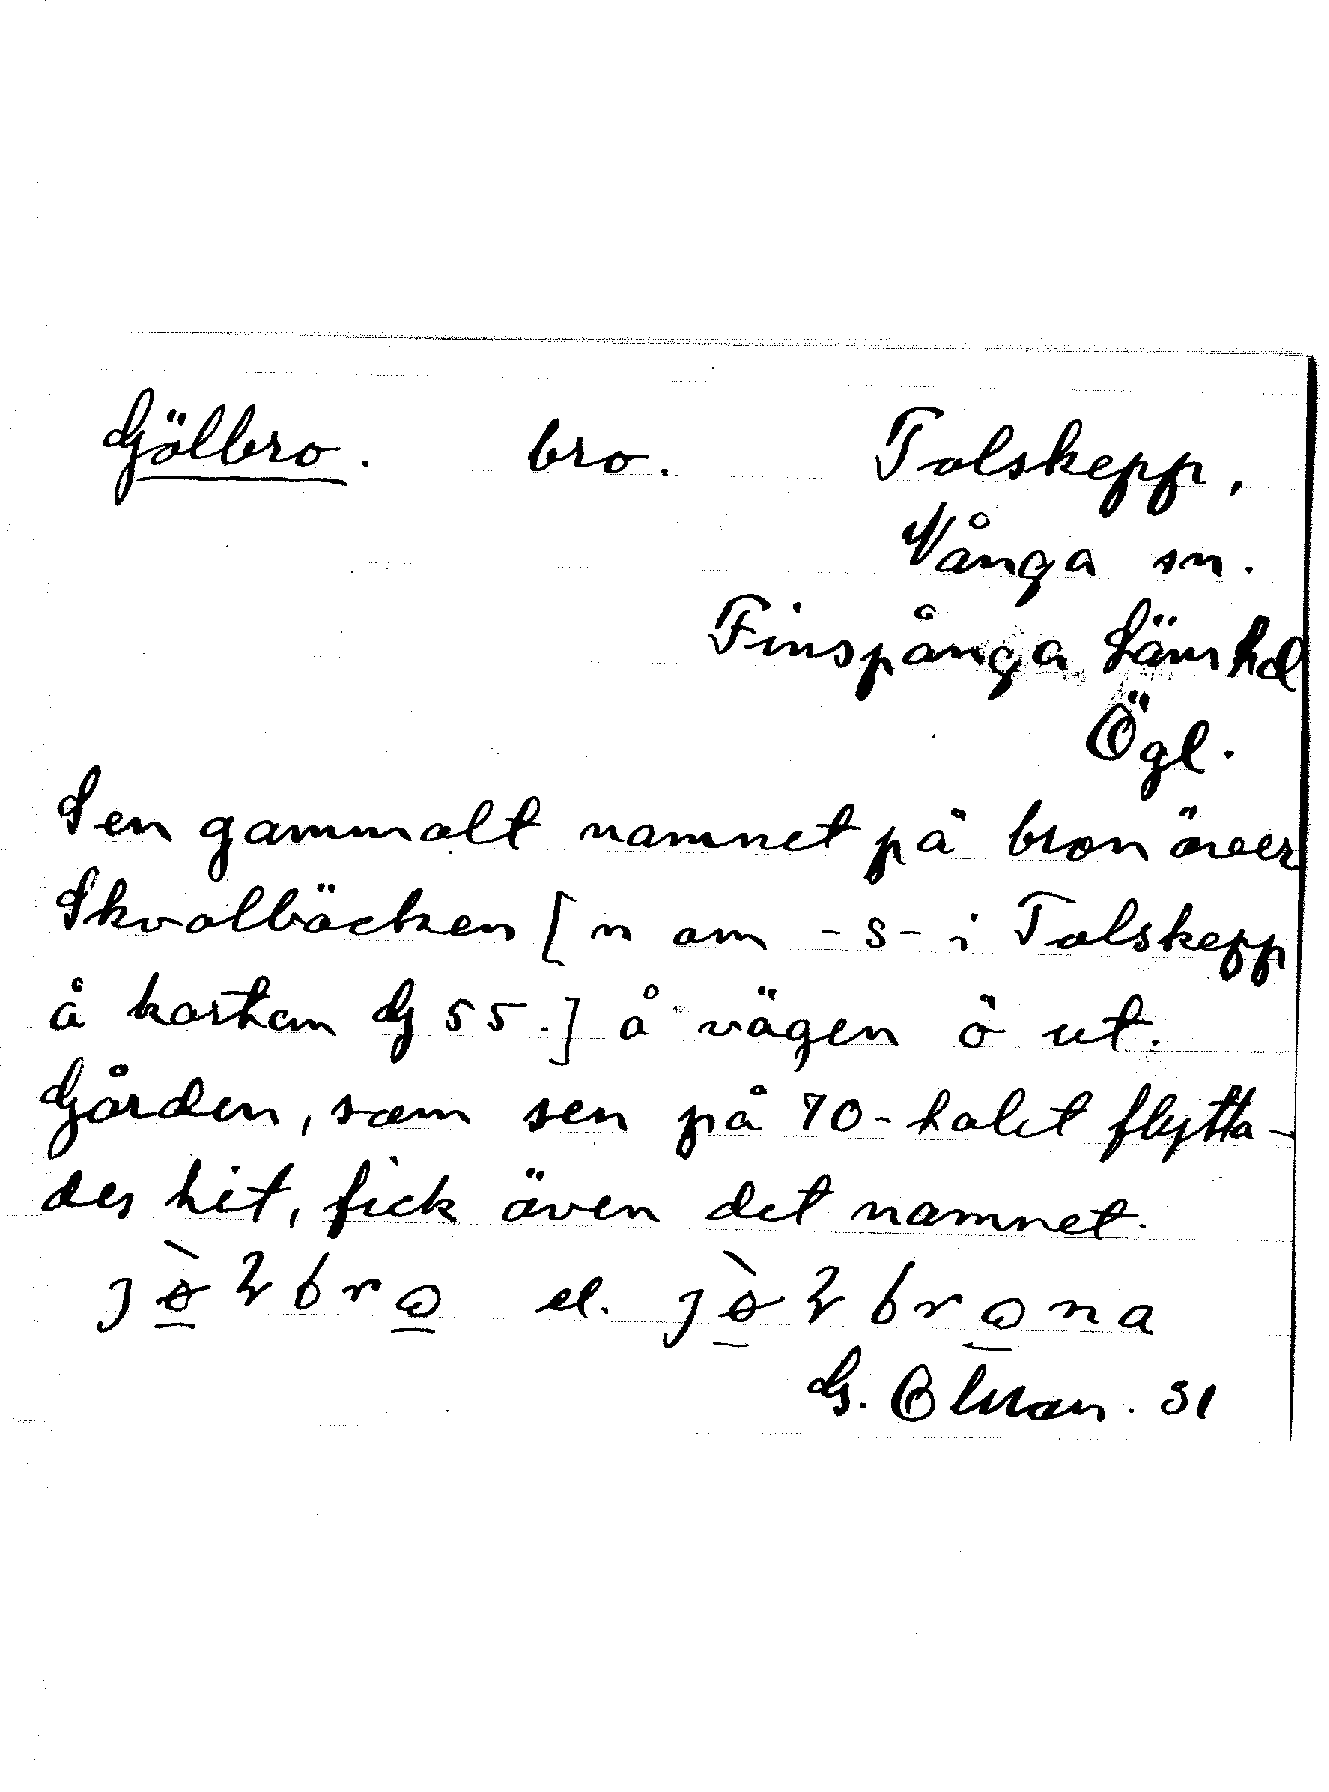 Gölbro. bro. Tolskepp,
Vånga sn.
Finspånga Läns hd
Ögl.
Sen gammalt namnet på bron över
Skvalbäcken [n om -s- i Tolskepp
å kartan G 55.] å vägen ö ut.
Gården, som sen på 70-talet flytta-
des hit, fick även det namnet.
el.
G. 31